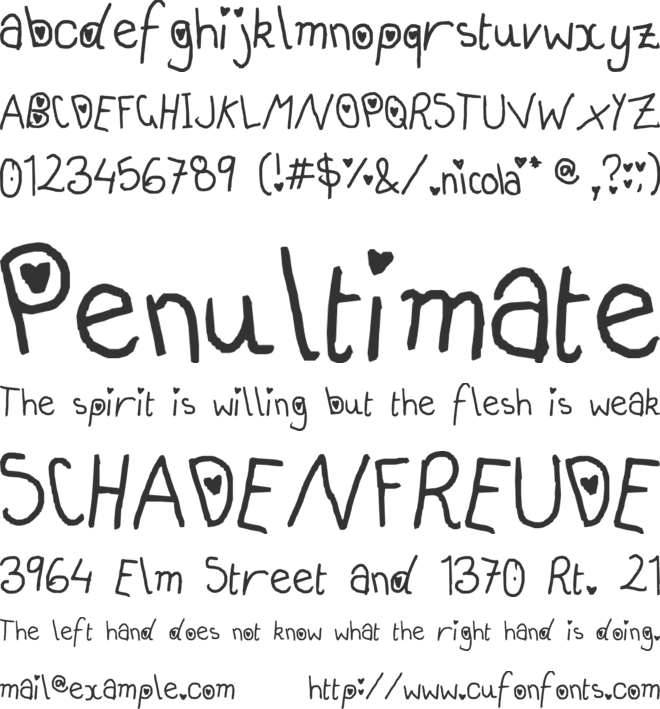 abcdefghijklmnopqrstuvwxyz
ABCDEFGHIJKLMNOPQRSTUVWXYZ
0123456789 (!#$%&/.nicola¨* @ ,?:;)
Penultimate
The spirit is willing but the flesh is weak
SCHADENFREUDE
3964 Elm Street and 1370 Rt. 21
The left hand does not know what the right hand is doing.
mail@example.com http://www.cufonfonts.com